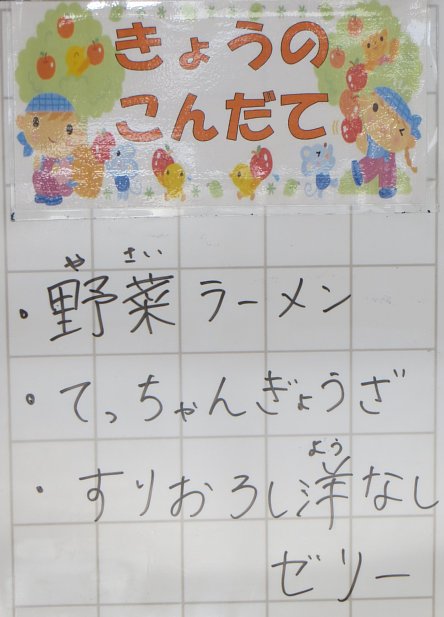 きょうの
こんだて
・野菜ラーメン
やさい
・てっちゃんぎょうざ
・すりおろし洋なし
よう
ゼリー